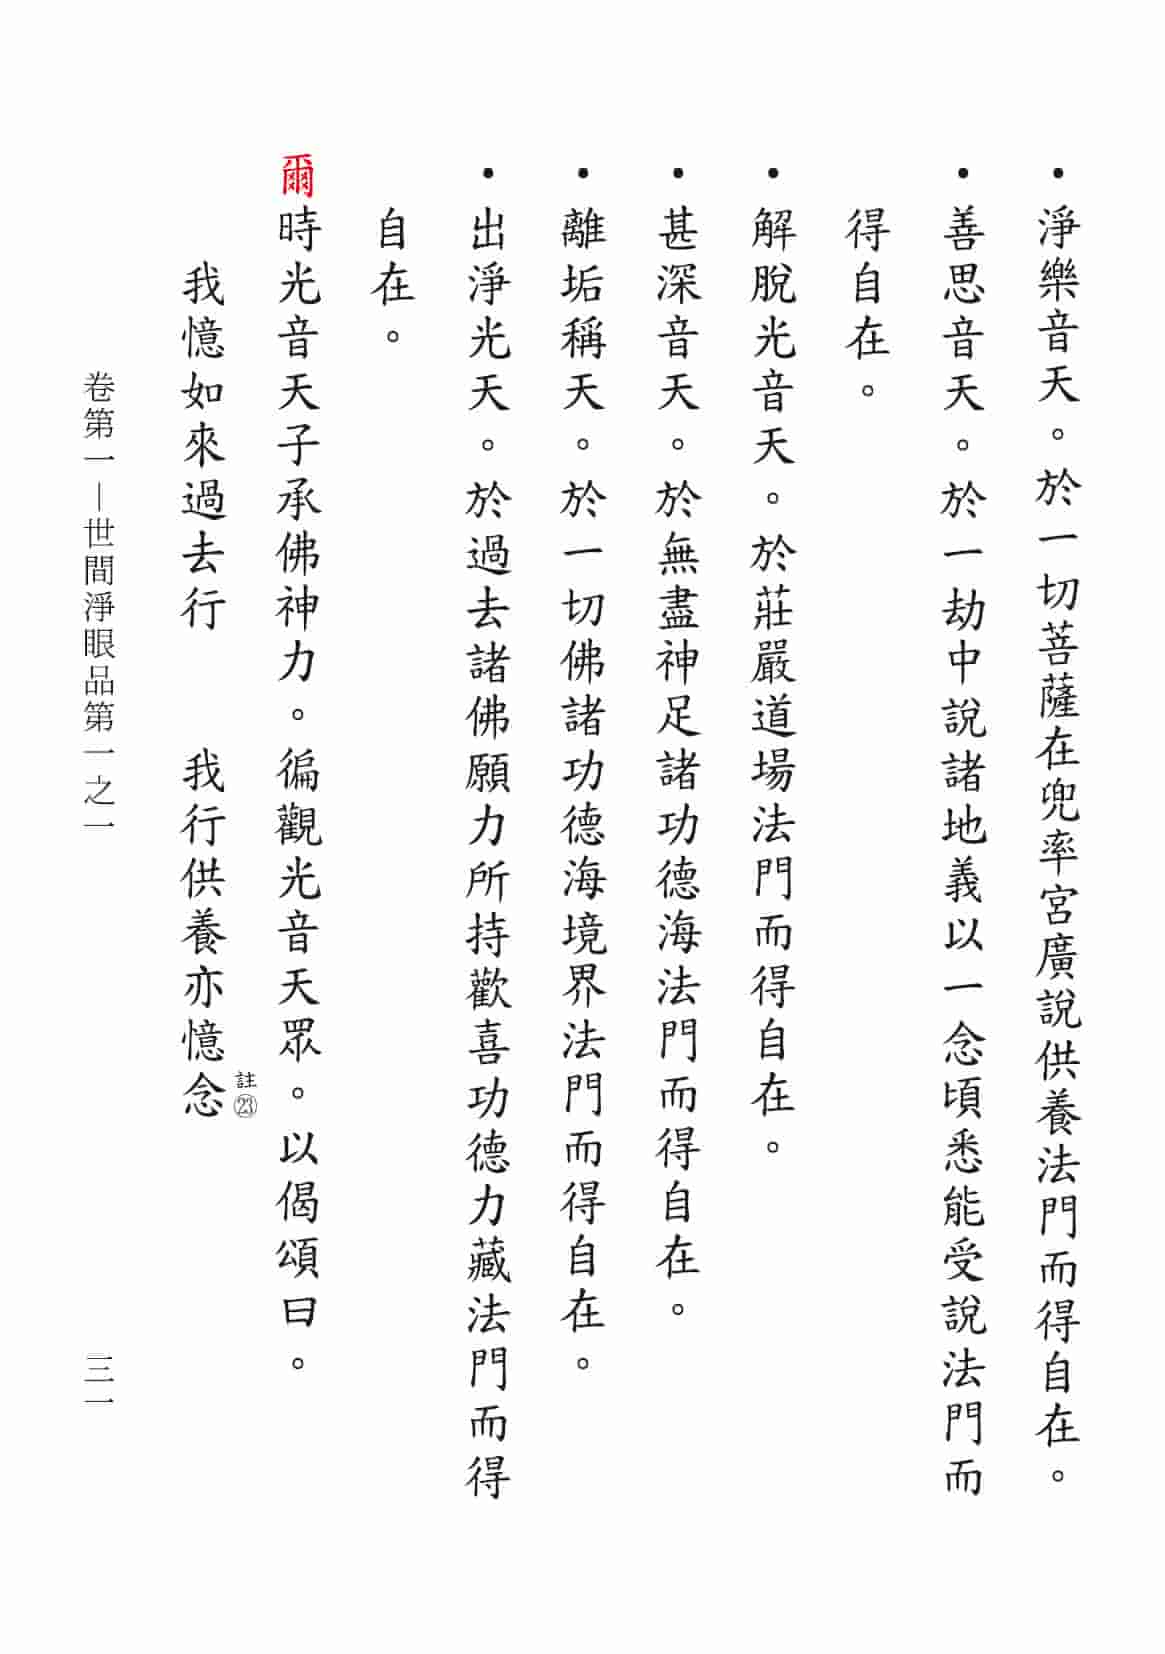 ・淨樂音天。於一切菩薩在兜率宮廣說供養法門而得自在。
・善思音天。於一劫中說諸地義以一念頃悉能受說法門而
得自在。
・解脫光音天。於莊嚴道場法門而得自在。
・甚深音天。於無盡神足諸功德海法門而得自在。
・離垢稱天。於一切佛諸功德海境界法門而得自在。
・出淨光天。於過去諸佛願力所持歡喜功德力藏法門而得
自在。
爾時光音天子承佛神力。徧觀光音天眾。以偈頌曰。
我憶如來過去行　我行供養亦憶念註㉓
卷第一—世間淨眼品第一之一
三一